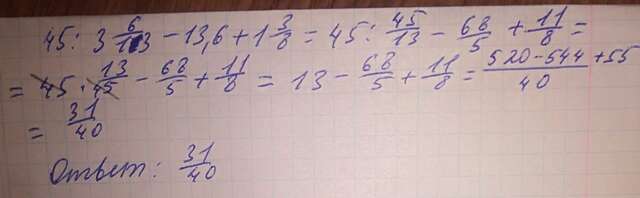 45 : 3 6/13 − 13,6 + 1 3/8 = 45 : 45/13 − 68/5 + 11/8 =
= 45 · 13/45 − 68/5 + 11/8 = 13 − 68/5 + 11/8 = (520 − 544 + 55)/40
= 31/40
Ответ: 31/40